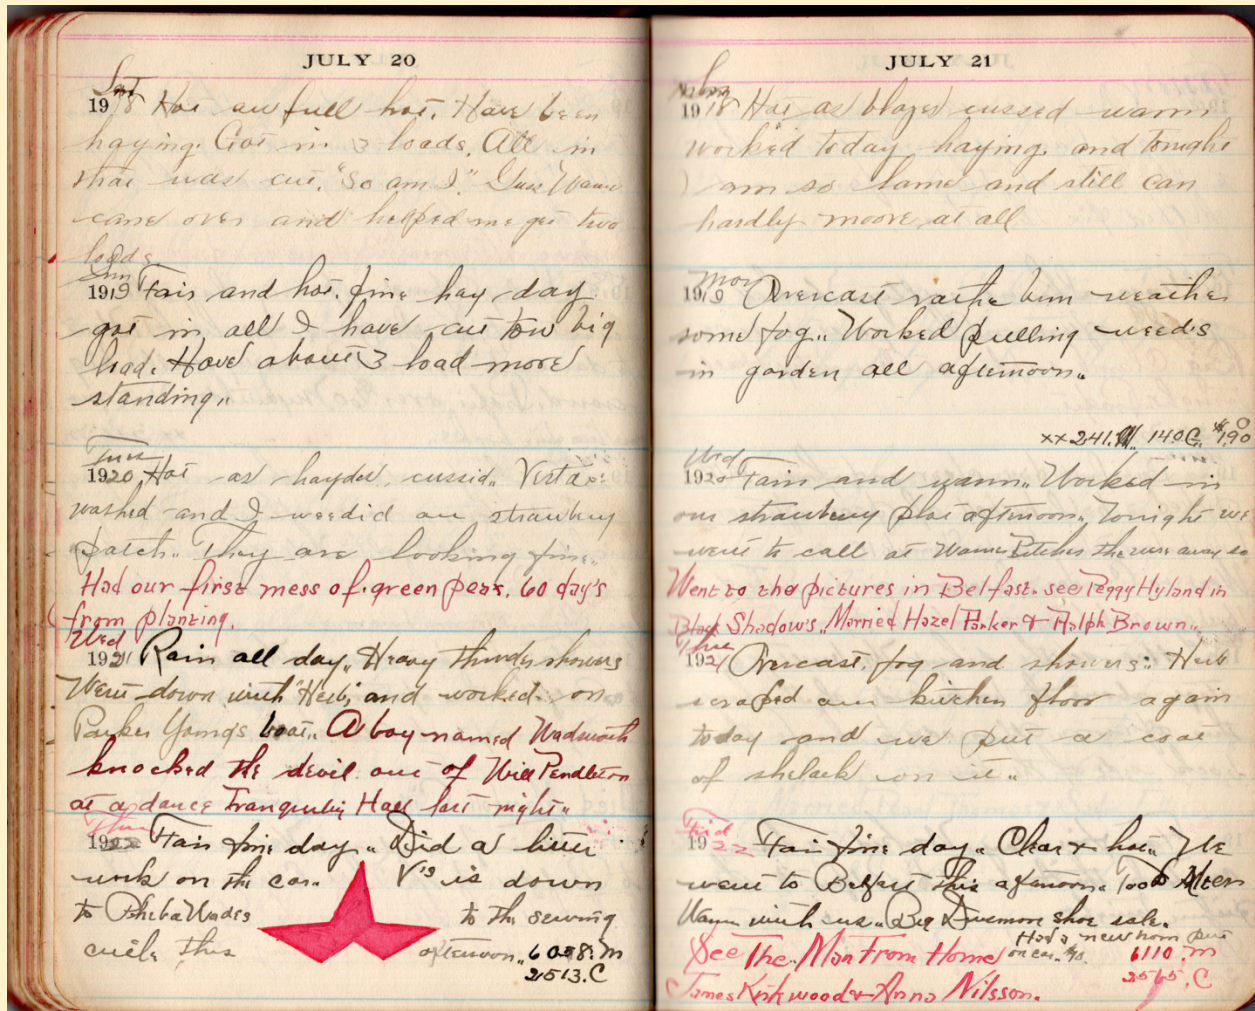 JULY 20
Sat
1918 Hot aw full hot. Have been
haying. Got in 3 loads. All in
that was cut. "So am I."
came over and helped me get two
loads.
Sun
1919 Fair and hot. fine hay day.
got in all I have cut tow big
load. Have about 3 load more
standing..
Tues
1920 Hot as hayder, cussid.. Vesta
washed and I weedid our strawbery
patch.. They are looking fine..
Had our first mess of green peas. 60 day's
from planting.
Wed
1921 Rain all day.. Heavy thunder showers
Went down with "Herb", and worked on
Parker Young's boat.. A boy named Wadsworth
knocked the devil out of Will Pendleton
at a dance Tranquility Hall last night..
Thur
1922 Fair fine day.. Did a litter
work on the car.. V is down
to Pheba Wades to the sewing
circle this afternoon.. 6088.m
2513.C
JULY 21
Sun
1918 Hot as blazes cussed warm
worked today haying. and tonight
I am so lame and still can
hardly moove at all
Mon
1919 Overcast rathe bum weather
some fog.. Worked pulling weeds
in garden all afternoon..
xx 241. M. 140 G. $1.90
Wed
1920 Fair and warm.. Worked in
our strawbery plot afternoon.. Tonight we
went to call at away so
Went to the pictures in Belfast. see Peggy Hyland in
Black Shadow's.. Married Hazel Parker & Ralph Brown..
Thur
1921 Overcast, fog and showers.. Herb
scraped our kitchen floor again
today and we put a coat
of shelack on it..
Frid
1922 Fair fine day.. Clear & hot.. We
went to Belfast this afternoon. Took
with us.. Big Dinsmore shoe sale.
Had a new horn put
See The Man From Home on car. $10. 6110.m
2565.C
James Kirkwood & Anna Nilsson.